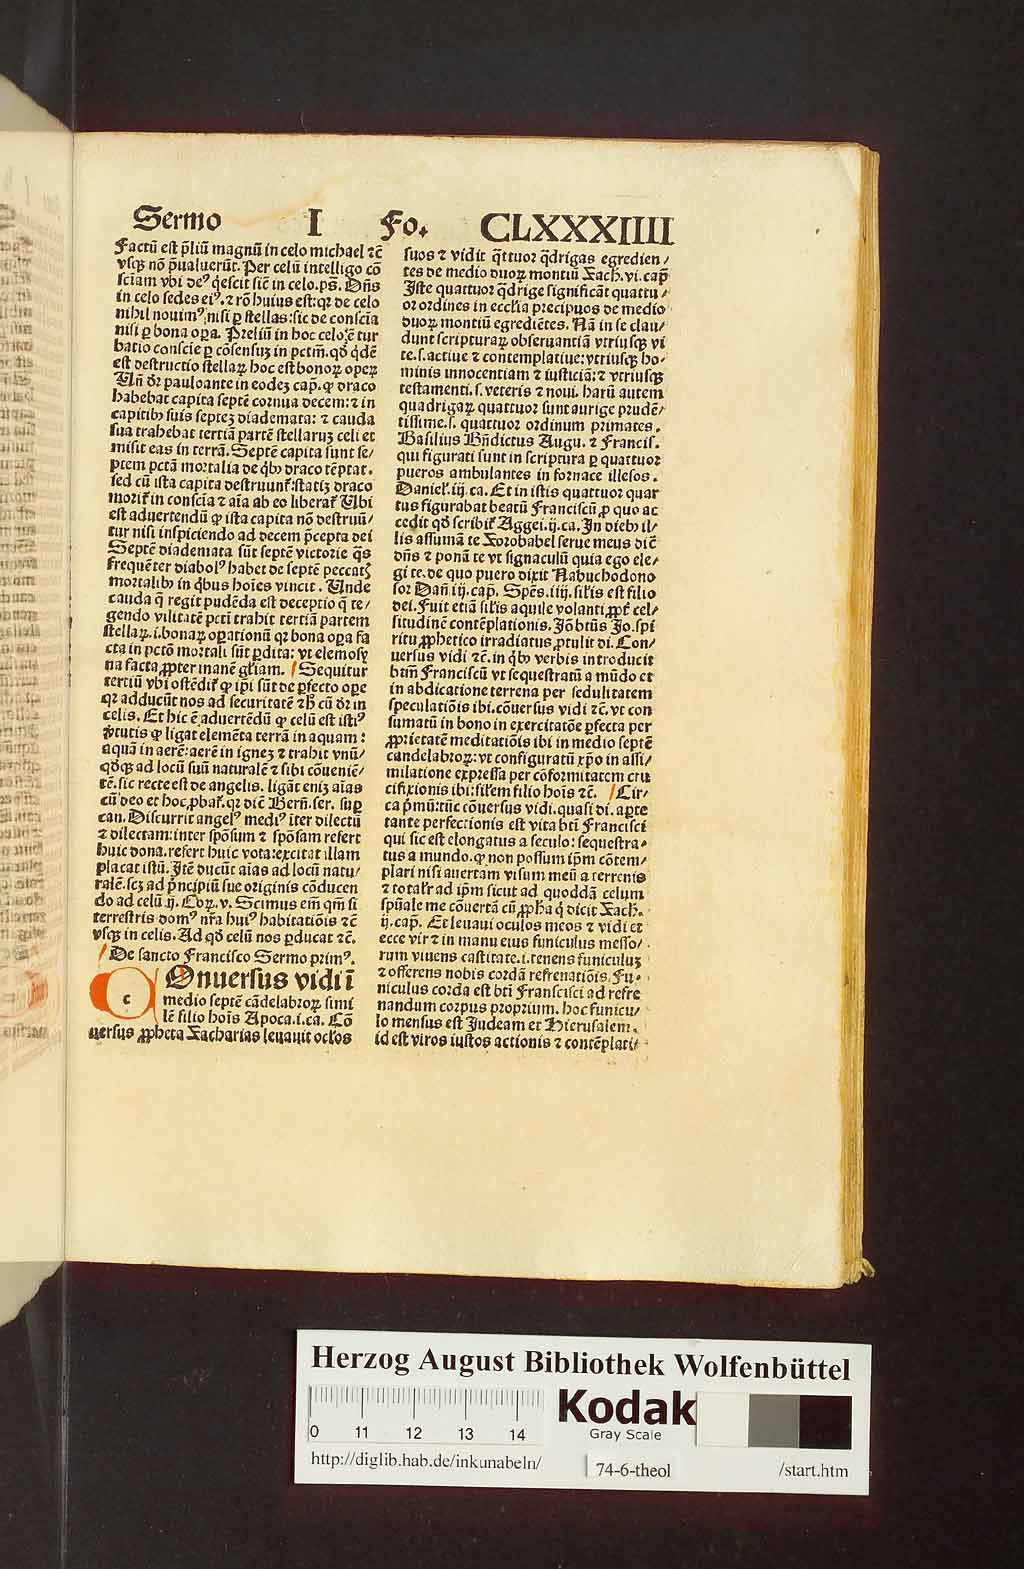 Sermo I Fo. CLXXXIIII
Factũ est p̃liũ magnũ in celo michael ⁊c̃
vsqꝫ nõ p̃ualuerũt. Per celũ intelligo cõ
sciam vbi deꝰ q̓escit sic̃ in celo. ps̃. Dñs
in celo sedes eiꝰ. ⁊ rõ huius est: qꝛ de celo
nihil nouimꝰ nisi ꝑ stellas: sic de conscĩa
nisi ꝑ bona oꝑa. Preliũ in hoc celo: ẽ tur
batio conscie ꝑ cõsensuꝫ in pctm̃. qd̓ q̓dẽ
est destructio stellaꝝ hoc est bonoꝝ opeꝝ
Uñ dr̃ pauloante in eodeꝫ cap̃. ꝙ draco
habebat capita septẽ cornua decem: ⁊ in
capitibꝰ suis septeꝫ diademata: ⁊ cauda
sua trahebat tertiã partẽ stellaruꝫ celi et
misit eas in terrã. Septẽ capita sunt se/
ptem pctã mortalia de q̓bꝰ draco tẽptat.
sed cũ ista capita destruunt᷑: statiꝫ draco
morit᷑ in conscĩa ⁊ aĩa ab eo liberat᷑ Ubi
est aduertendũ ꝙ ista capita nõ destruũ/
tur nisi inspiciendo ad decem p̃cepta dei
Septẽ diademata sũt septẽ victorie q̃s
frequẽter diabolꝰ habet de septẽ peccatꝭ
mortalibꝰ in q̓bus hoĩes vincit. Unde
cauda q̃ regit pudẽda est deceptio q̃ te/
gendo vilitatẽ pctĩ trahit tertiã partem
stellaꝝ. i. bonaꝝ oꝑationũ qꝛ bona oꝑa fa
cta in pctõ mortali sũt ꝑdita: vt elemosy
na facta ꝓpter inanẽ gl̃iam. Sequitur
tertiũ vbi ostẽdit᷑ ꝙ ip̃i sũt de ꝑfecto oꝑe
qꝛ adducũt nos ad securitatẽ ⁊ħ cũ dr̃ in
celis. Et hic ẽ aduertẽdũ ꝙ celũ est istiꝰ
v̓tutis ꝙ ligat elemẽta terrã in aquam:
aquã in aerẽ: aerẽ in igneꝫ ⁊ trahit vnũ/
qd̓qꝫ ad locũ suũ naturalẽ ⁊ sibi cõueniẽ/
tẽ. sic recte est de angelis. ligãt eniꝫ aĩas
cũ deo et hoc ꝓbat᷑. qꝛ dic̃ Berñ. ser. suꝑ
can. Discurrit angelꝰ mediꝰ ĩter dilectũ
⁊ dilectam: inter spõsum ⁊ spõsam refert
huic dona. refert huic vota: excitat illam
placat istũ. Itẽ ducũt aĩas ad locũ natu/
ralẽ. scꝫ ad p̓ncipiũ sue originis cõducen
do ad celũ ij. Coꝝ. v. Scimus em̃ qm̃ si
terrestris domꝰ nr̃a huiꝰ habitatiõis ⁊c̃
vsqꝫ in celis. Ad qd̓ celũ nos ꝑducat ⁊c̃.
De sancto Francisco Sermo primꝰ.
c Onuersus vidi ĩ
medio septẽ cãdelabroꝝ simi
lẽ filio hoĩs Apoca. i. ca. Cõ
uersus ꝓpheta Zacharias leuauit ocl̃os
suos ⁊ vidit q̃ttuor q̃drigas egredien/
tes de medio duoꝝ montiũ Zach. vi. cap̃
Iste quattuor q̃drige significãt quattu/
or ordines in eccl̃ia precipuos de medio
duoꝝ montiũ egrediẽtes. Nã in se clau/
dunt scripturaꝝ obseruantiã vtriusqꝫ vi
te. s. actiue ⁊ contemplatiue: vtriusqꝫ ho-
minis innocentiam ⁊ iusticiã: ⁊ vtriusqꝫ
testamenti. s. veteris ⁊ noui. harũ autem
quadrigaꝝ quattuor sunt aurige prudẽ/
tissime. s. quattuor ordinum primates.
Basilius Bñdictus Augu. ⁊ Francis.
qui figurati sunt in scriptura ꝑ quattuor
pueros ambulantes in fornace illesos.
Daniel̓. iij. ca. Et in istis quattuor quar
tus figurabat beatũ Franciscũ ꝓ quo ac
cedit qd̓ scribit᷑ Aggei. ij. ca. In diebꝰ il/
lis assumã te Zorobabel serue meus dic̃
dñs ⁊ ponã te vt signaculũ quia ego ele/
gi te. de quo puero dixit Nabuchodono
sor Dañ iij. cap̃. Spẽs. iiij. sil̓is est filio
dei. Fuit etiã sil̓is aquile volanti ꝓpt̓ cel/
situdinẽ contẽplationis. Jõ btũs Jo. spi
ritu ꝓphetico irradiatus ꝓtulit di. Con/
uersus vidi ⁊c̃. in q̓bꝰ verbis introducit
btm̃ Franciscũ vt sequestratũ a mũdo et
in abdicatione terrena per sedulitatem
speculatiõis ibi. cõuersus vidi ⁊c̃. vt con
sumatũ in bono in exercitatõe ꝑfecta per
ꝓprietatẽ meditatiõis ibi in medio septẽ
candelabroꝝ: vt configuratũ xp̃o in assi/
milatione expressa per cõformitatem cru
cifixionis ibi: sil̓em filio hoĩs ⁊c̃. Cir/
ca p̓mũ: tũc cõuersus vidi. quasi di. aꝑte
tante perfectionis est vita bti Francisci
qui sic est elongatus a seculo: sequestra-
tus a mundo. ꝙ non possum ip̃m cõtem/
plari nisi auertam visum meũ a terrenis
⁊ total̓r ad ip̃m sicut ad quoddã celum
spũale me cõuertã cũ ꝓpha q̓ dicit Zach.
ij. cap̃. Et leuaui oculos meos ⁊ vidi et
ecce vir ⁊ in manu eius funiculus messo/
rum viuens castitate. i. tenens funiculuꝫ
⁊ offerens nobis cordã refrenatiõis. Fu-
niculus corda est bti Francisci ad refre
nandum corpus proprium. hoc funicu/
lo mensus est Judeam et Hierusalem.
id est viros iustos actionis ⁊ contẽplati/
Herzog August Bibliothek Wolfenbüttel
0 11 12 13 14
Kodak
Gray Scale
http://diglib.hab.de/inkunabeln/ 74-6-theol /start.htm